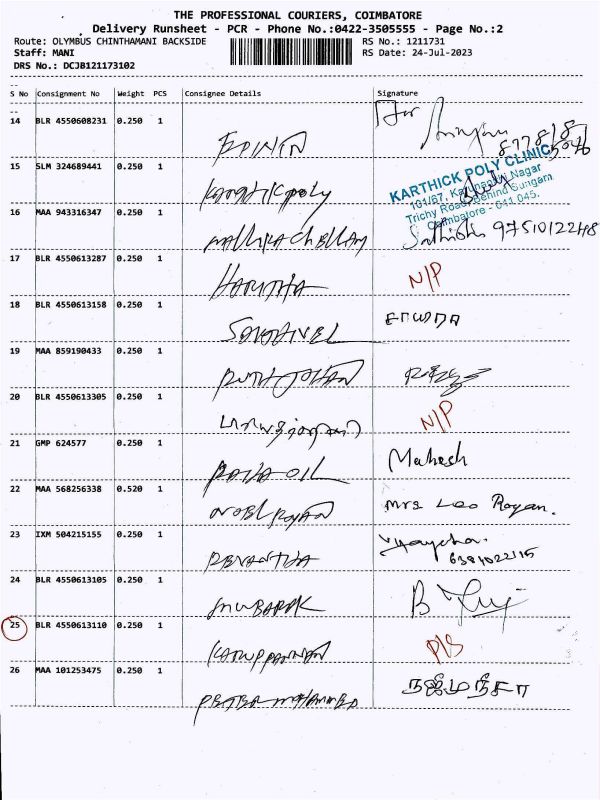 THE PROFESSIONAL COURIERS, COIMBATORE
Delivery Runsheet - PCR - Phone No.:0422-3505555 - Page No.:2
Route: OLYMBUS CHINTHAMANI BACKSIDE RS No.: 1211731
Staff: MANI RS Date: 24-Jul-2023
DRS No.: DCJB121173102
S No Consignment No Weight PCS Consignee Details Signature
14 BLR 4550608231 0.250 1
EDININ
877818
15 SLM 324689441 0.250 1
KARTHICK POLY CLINIC
101/67, Nagar
Trichy Road, Behind Sungam
Coimbatore - 641 045.
16 MAA 943316347 0.250 1
Sathish 9751012248
17 BLR 4550613287 0.250 1
N/P
HARITHA
18 BLR 4550613158 0.250 1
19 MAA 859190433 0.250 1
20 BLR 4550613305 0.250 1
N/P
21 GMP 624577 0.250 1
Mahesh
OIL
22 MAA 568256338 0.520 1
Mrs Leo Royan.
NOBL ROYAN
23 IXM 504215155 0.250 1
6381022115
REVANTHA
24 BLR 4550613105 0.250 1
MUBARAK
25 BLR 4550613110 0.250 1
KARUPPANNAN
26 MAA 101253475 0.250 1
நஜீமநிசா